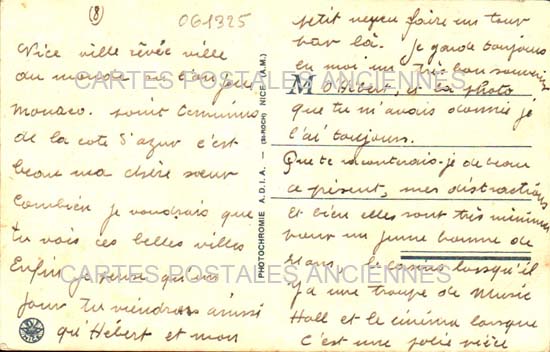 (8)
061325
Nice ville rêvée ville
du monde ou l'on joue
Monaco. point terminus
de la cote d'azur c'est
beau ma chère sœur
Combien je voudrais que
tu vois ces belles villes
Enfin je pense qu'un
jour tu viendras aussi
qu'Hébert et mon
petit neveu faire un tour
par là. Je garde toujours
en moi un très bon souvenir
M
d'Hébert, et la photo
que tu m'avais donnée je
l'ai toujours.
Que te raconterais-je de beau
ce présent, mes distractions
Et bien elles sont très minimes
pour un jeune homme de
ans, le casino lorsqu'il
y a une troupe de Music
Hall et le cinéma lorsque
C'est une jolie pièce
PHOTOCHROMIE A.D.I.A. - (St-ROCH) NICE (A.M.)
CARTES POSTALES ANCIENNES
CARTES POSTALES ANCIENNES